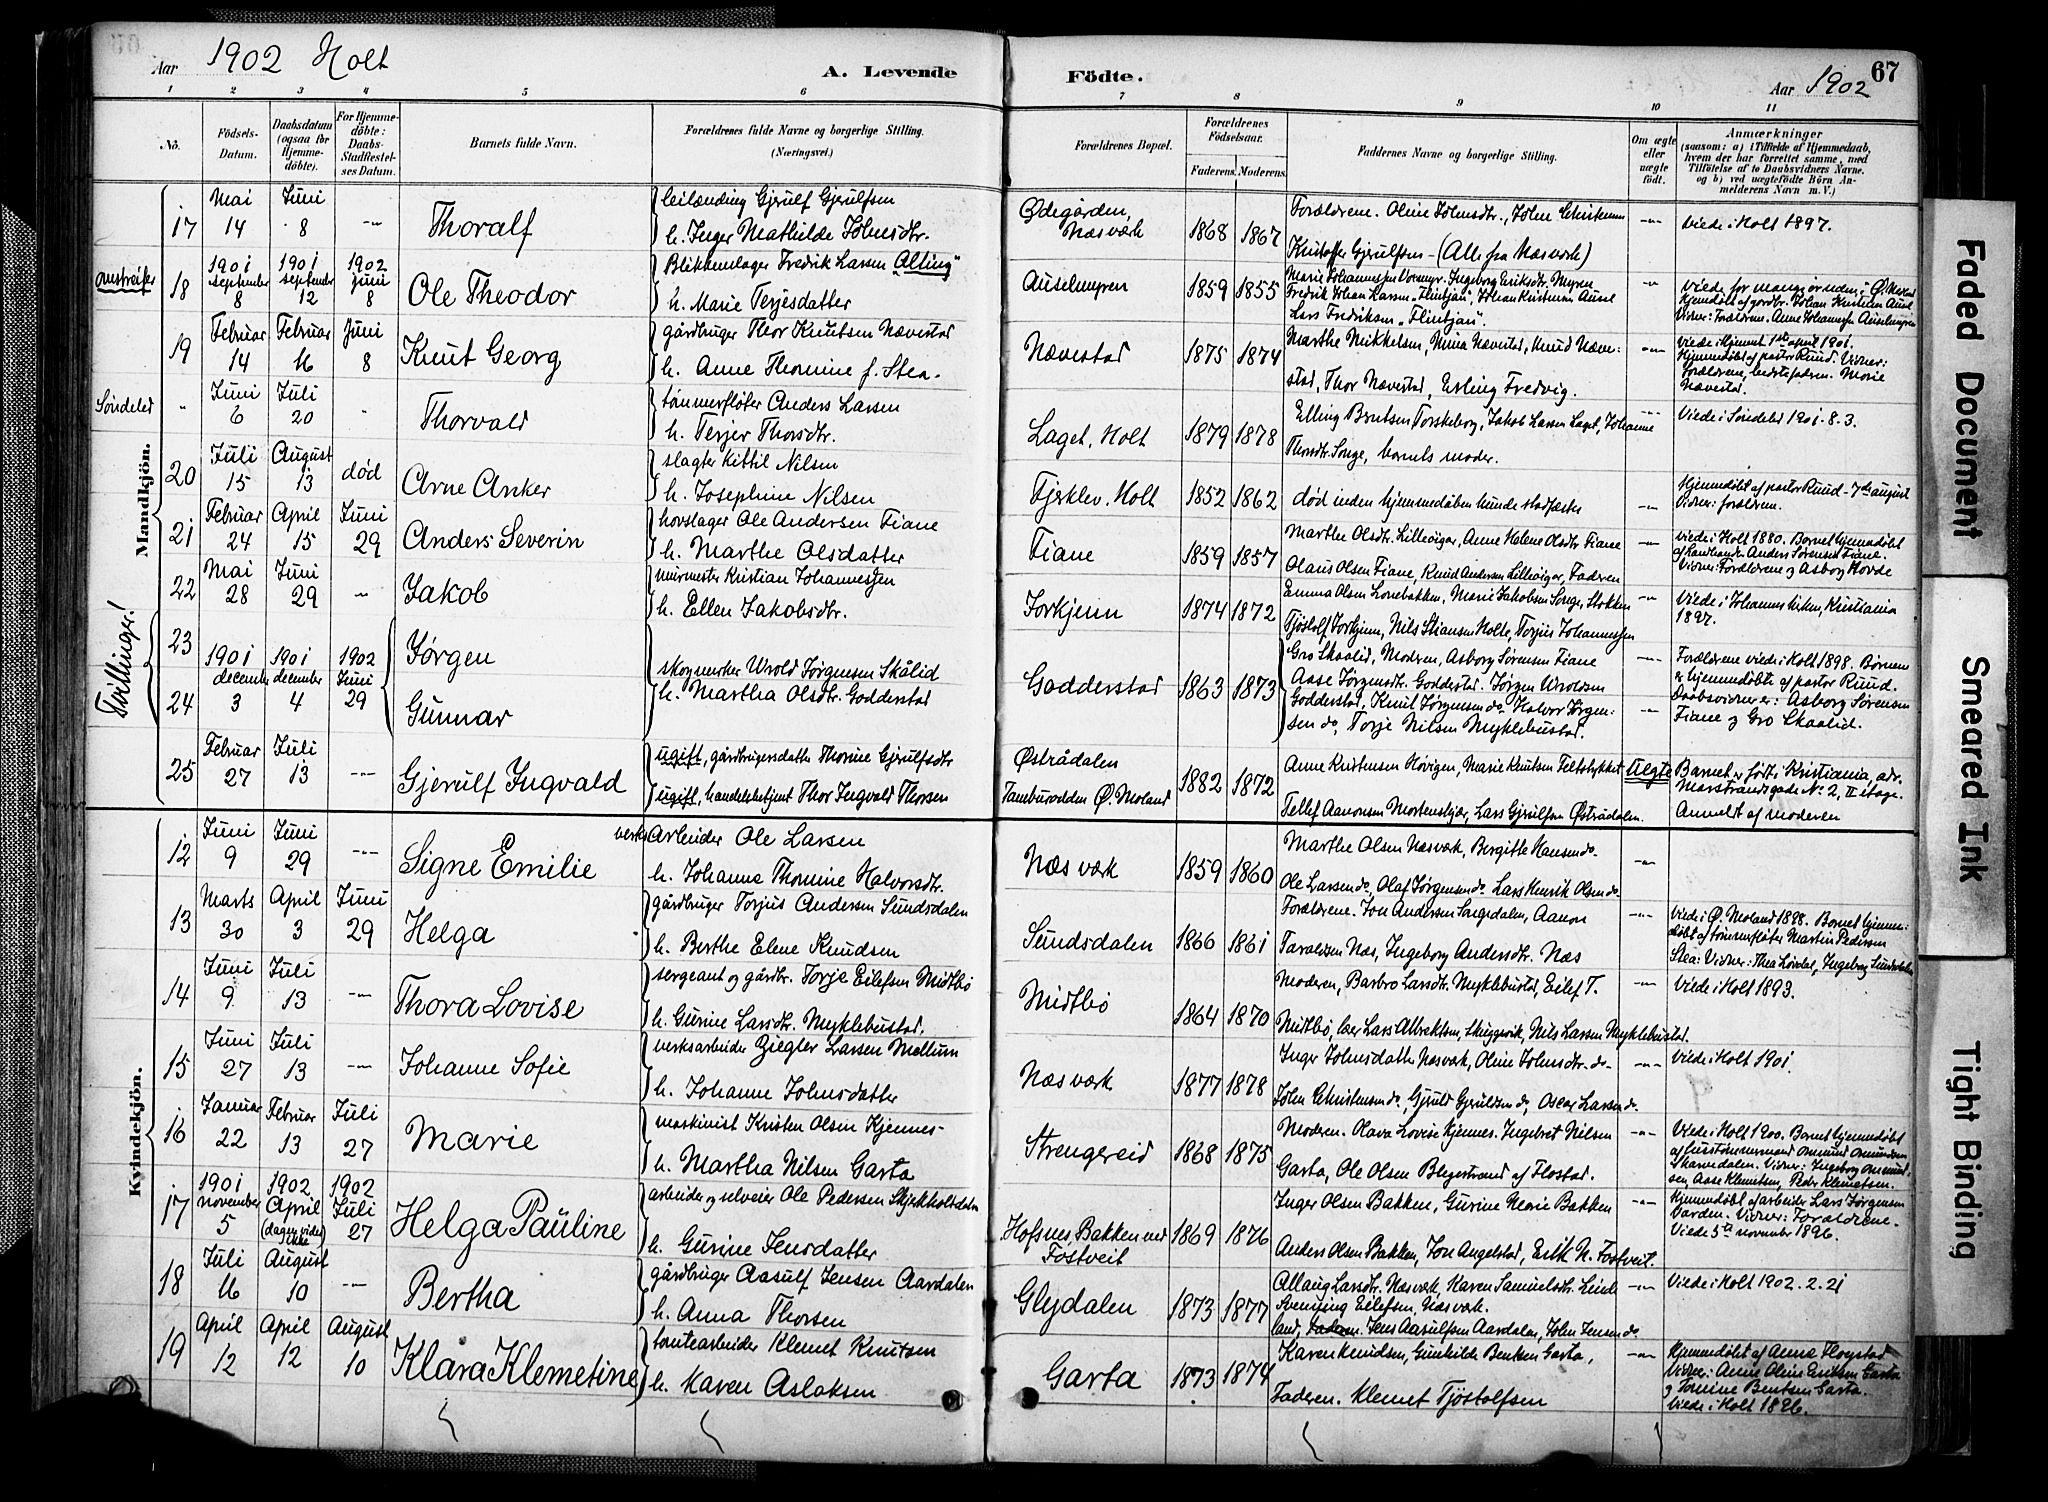 Aar 1902 Holt
A. Levende
Fødte.
Aar 1902
67
1 2 3 4 5 6 7 8 9 10 11
No.
Fødsels-
Datum.
Daabsdatum
(ogsaa for
Hjemme-
døbte).
For Hjemme-
døbte:
Daabs-
Stadfæstel-
ses Datum.
Barnets fulde Navn.
Forældrenes fulde Navne og borgerlige Stilling.
(Næringsvei.)
Forældrenes Bopæl.
Forældrenes
Fødselsaar.
Faderens. Moderens.
Faddernes Navne og borgerlige Stilling.
Om ægte
eller
uægte
født.
Anmærkninger
(saasom: a) i Tilfælde af Hjemmedaab,
hvem der har forrettet samme, med
Tilføielse af to Daabsvidners Navne.
og b) ved uægtefødte Børn An-
melderens Navn m. V.)
Mandkjön.
17
Mai
14
Juni
8
Thoralf
leilænding Gjerulf Gjerulfsen
h. Inger Mathilde Johnsdtr.
Ødegården,
Næsværk
1868 1867
Forældrene. Oline Johnsdtr., John Christensen
Kristoffer Gjerulfsen - (Alle fra Næsværk)
Viede i Holt 1897.
omstreifer
18
1901
september
8
1901
september
12
1902
Juni
8
Ole Theodor
Blikkenslager Fredrik Larsen "Alting"
h. Marie Terjesdatter
Auselmyren
1859 1855
Fredrik Johan Larsen "Flintjan", Johan Kristensen Ausel
Lars Fredriksen "Flintjan".
Viede for mange år siden i Ø. Moland
Vidner: Forældrene. Anne Johannesen Auselmyren
19
Februar
14
Februar
16
Juni
8
Knut Georg
gårdbruger Thor Knutsen Nævestad
h. Anne Thomine f. Stea.
Nævestad
1875 1874
Marthe Mikkelsen, Anna Nævestad, Knud Næve-
stad, Thor Nævestad, Erling Fredvig.
Viede i hjemmet 1ste april 1901.
Hjemmedøbt af pastor Ruud. Vidner:
Forældrene, bedstefaderen. Marie
Nævestad.
Søndeled
"
Juni
6
Juli
20
Thorvald
tømmerfløter Anders Larsen
h. Terjer Thorsdtr.
Laget, Holt
1879 1878
Elling Berntsen Torskeberg, Jakob Larsen Laget, Johanne
Thorsdtr. Songe, barnets moder.
Viede i Søndeled 1901. 8. 3.
20
Juli
15
August
13
død
Arne Anker
slagter Kittil Nilsen
h. Josephine Nilsen
Fjerklev. Holt
1852 1862
død inden hjemmedåben kunde stadfæstes
Hjemmedøbt af pastor Ruud - 7de august
Vidner: forældrene.
21
Februar
24
April
15
Juni
29
Anders Severin
hovslager Ole Andersen Fiane
h. Marthe Olsdatter
Fiane
1859 1857
Marthe Olsdtr. Lilleviger, Anne Helene Olsdtr Fiane
Olaus Olsen Fiane, Knud Andersen Lilleviger, Faderen
Viede i Holt 1880. Barnet hjemmedøbt
af landhandler Anders Sørensen Fiane.
Vidner: Forældrene og Asborg Hovde
22
Mai
28
Juni
29
Jakob
murmester Kristian Johannesen
h. Ellen Jakobsdtr.
Jorkjenn
1874 1872
Emma Olsen Lonebakken, Marie Jakobsen Songe, Stokken
Tjøstolf Jorkjenn, Nils Stiansen Holte, Torjus Johannessen
Viede i Johannes kirken, Kristiania
1897.
Tvillinger!
23
24
1901
december
3
1901
december
4
1902
Juni
29
Jørgen
Gunnar
skogmerker Wrold Jørgensen Skålid
h. Martha Olsdtr. Godderstad
Godderstad
1863 1873
Gro Skaalid, Modren, Asborg Sørensen Fiane
Aase Jørgensdtr. Godderstad. Jørgen Wroldsen
Godderstad, Knut Jørgensen do. Halvor Jørgen-
sen do, Torje Nilsen Myklebustad.
Forældrene viede i Holt 1898. Børnene
er hjemmedøbte af pastor Ruud.
Dåbsvidner er: Asborg Sørensen
Fiane og Gro Skaalid.
25
Februar
27
Juli
13
Gjerulf Ingvald
ugift, gårdbrugersdatter Thomine Gjerulfsdtr
ugift, handelsbetjent Thor Ingvald Thorsen
Østrådalen
Tambursodden Ø. Moland
1882 1872
Anne Kristensen Hovigen, Marie Knutsen Feltstykket
Tellef Aanonsen Mortenskjær, Lars Gjerulfsen Østrådalen.
Uegte
Barnet er født i Kristiania, adr.
Marstrandsgade No 2, II etage.
Anmeldt af moderen
Kvindekjön.
12
Juni
9
Juni
29
Signe Emilie
verksarbeider Ole Larsen
h. Johanne Thomine Halvorsdtr.
Næsværk
1859 1860
Marthe Olsen Næsværk, Bergitte Hansen do.
Ole Larsen do, Olaf Jørgensen do. Lars Henrik Olsen do
13
Marts
30
April
3
Juni
29
Helga
gårdbruger Torjus Andersen Sundsdalen
h. Berthe Elene Knudsen
Sundsdalen
1866 1861
Forældrene. Jon Andersen Songedalen, Aanon
Taraldsen Næs, Ingeborg Andersdtr. Næs
Viede i Ø. Moland 1888. Barnet hjemme-
døbt af tømmerfløter Martin Pedersen
Stea: Vidner: Thea Løvdal, Ingeborg Sundsdalen
14
Juni
9
Juli
13
Thora Lovise
sergeant og gårdbr. Torje Eilefsen Midtbø
h. Gurine Larsdtr. Myklebustad.
Midtbø
1864 1870
Moderen, Barbro Larsdtr. Myklebustad, Eilef T.
Midtbø, lær Lars Albrektsen, Skuggevik, Nils Larsen Myklebustad.
Viede i Holt 1893.
15
Juni
27
Juli
13
Johanne Sofie
verksarbeider Ziegler Larsen Mellum
h. Johanne Johnsdatter
Næsværk
1877 1878
Inger Johnsdatter Næsværk, Oline Johnsdtr. do-
John Christensen do, Gjeruld Gjeruldsen do, Oscar Larsen do.
Viede i Holt 1901.
16
Januar
22
Februar
13
Juli
27
Marie
maskinist Kristen Olsen Kjennes-
h. Martha Nilsen Garta
Strengereid
1868 1875
Moderen. Olava Lovise Kjennes. Ingebret Nilsen
Garta, Ole Olsen Blegestrand af Flostad.
Viede i Holt 1900. Barnet hjemmedøbt
af hustømmermand Omund Omundsen
Skarvedalen. Vidner: Ingeborg Omund-
sen, Aase Klemetsen, Peder Klemetsen.
17
1901
november
5
1902
April
(dagen vides
ikke)
1902
Juli
27
Helga Pauline
arbeider og selveier Ole Pedersen Skjerkholtdalen
h. Gurine Jensdatter
Hofsnes, Bakken ved
Fostveit
1869 1876
Inger Olsen Bakken, Gurine Marie Bakken
Anders Olsen Bakken, Jon Angelstad, Erik N. Fostveit.
Hjemmedøbt af arbeider Lars Jørgensen
Varden. Vidner: Forældrene.
Viede 5te november 1896.
18
Juli
16
August
10
Bertha
gårdbruger Aasulf Jensen Aardalen
h. Anna Thorsen
Glydalen
1873 1877
Allaug Larsdtr. Næsværk, Karen Samuelsdtr. Linde-
Svenning Eilefsen, Næsværk.
land, Faderen. Jens Aasulfsen Aardalen, John Jensen do
Viede i Holt 1902. 2. 21
19
April
12
April
12
August
10
Klara Klemetine
tomtearbeider Klemet Knutsen
h. Karen Aslaksen
Garta
1873 1874
Karen Knudsen, Gunhilde Bentsen Garta,
Faderen. Klemet Tjöstolfsen
Hjemmedøbt af Anne Flogstad
Vidner: Anne Oline Eriksen Garta
og Tomine Bentsen Garta.
Viede i Holt 1896.
Faded Document
Smeared Ink
Tight Binding